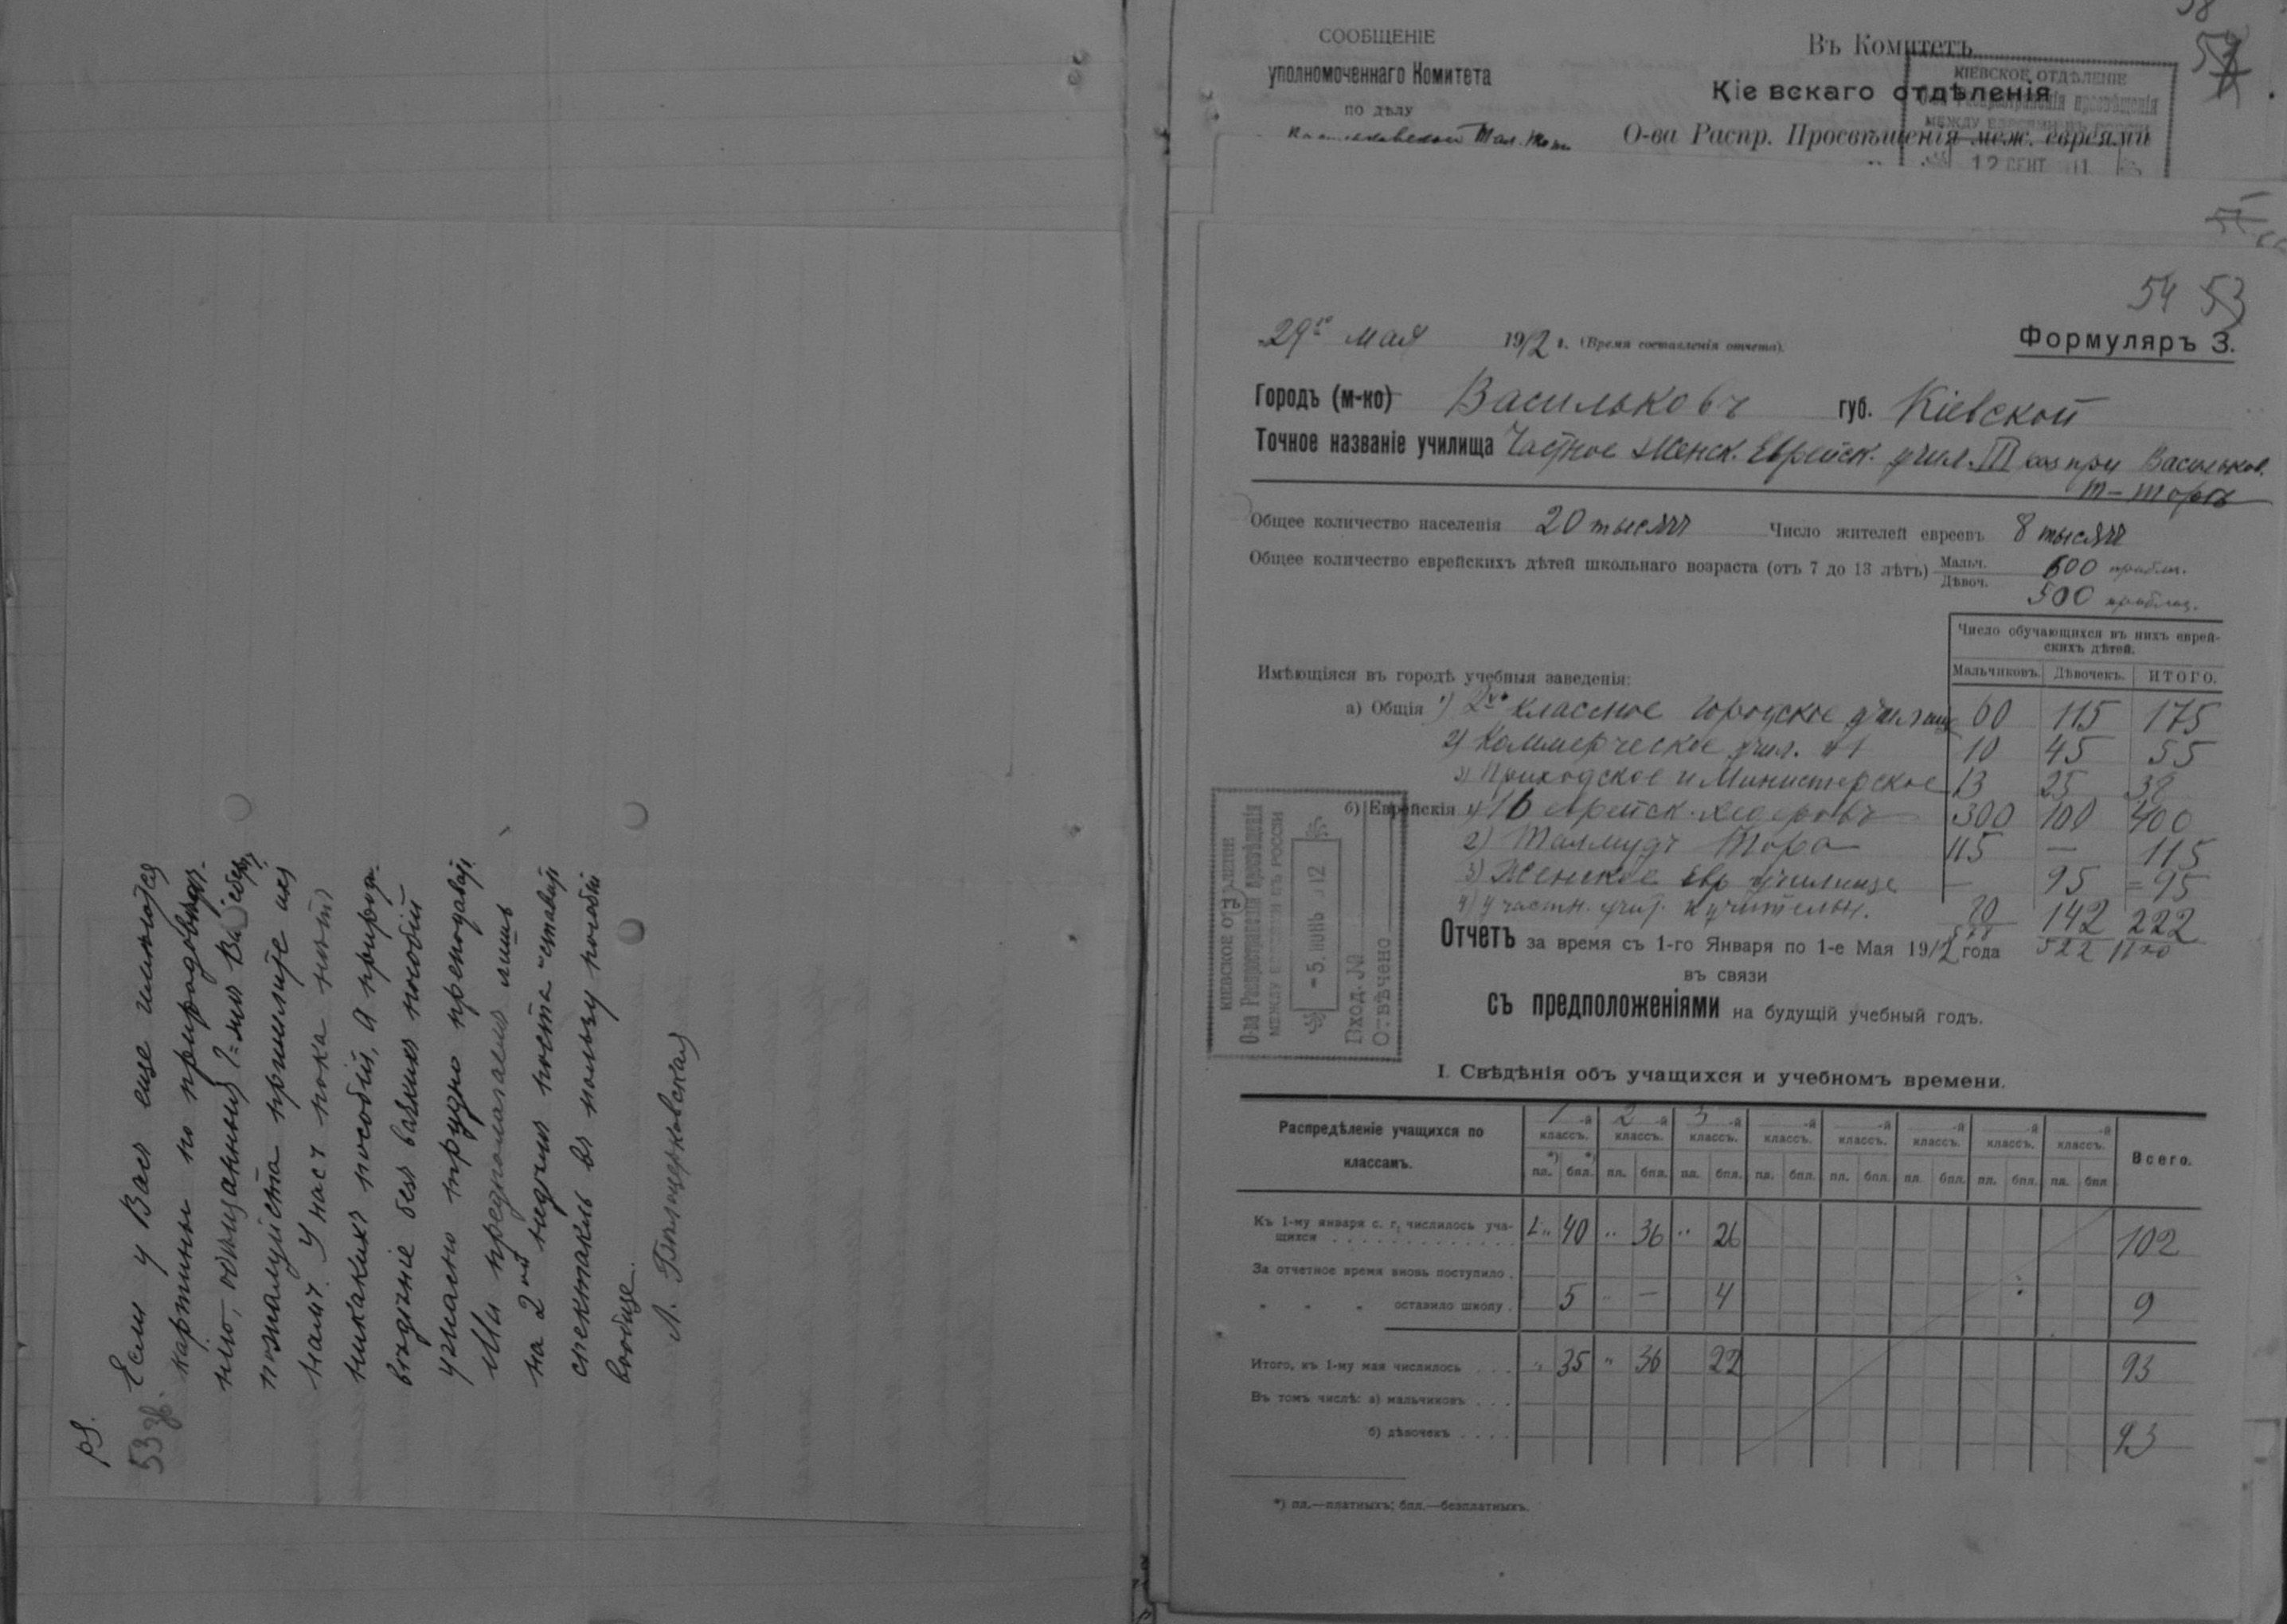 PS.
53 зв.
Если у Вас еще имеются
картины по природовѣд-
нію, обѣщанныя
пожалуйста пришлите их
намъ. У насъ пока нѣтъ
никакихъ пособій, а природо-
вѣдѣніе безъ всякихъ пособій
ужасно трудно преподавать
Мы предполагаемъ лишь
на 2ой недѣлѣ поста ставить
спектакль въ пользу пособій
вообще.
Л. Бѣлоцерковская
СООБЩЕНІЕ
уполномоченнаго Комитета
по дѣлу
Тал. Торы
Въ Комитетъ
Кіевскаго отдѣленія
О-ва Распр. Просвѣщенія меж. евреями
КІЕВСКОЕ ОТДѢЛЕНІЕ
О-ва Распространенія просвѣщенія
МЕЖДУ ЕВРЕЯМИ ВЪ РОССІИ
12 СЕНТ 1911
54 53
29го мая 1912 г. (Время составленія отчета).
Формуляръ 3.
Городъ (м-ко) Васильковъ губ. Кіевской
Точное названіе училища Частное Женск. Еврейск. учил. III раз при Васильков.
Т-Торѣ
Общее количество населенія 20 тысяч Число жителей евреевъ 8 тысяч
Общее количество еврейскихъ дѣтей школьнаго возраста (отъ 7 до 13 лѣтъ) Мальч. 600 приблиз.
Дѣвоч. 500 приблиз.
Число обучающихся въ нихъ еврей-
скихъ дѣтей.
Имѣющіяся въ городѣ учебныя заведенія: Мальчиковъ. Дѣвочекъ. ИТОГО.
а) Общія 1) 2хъ классное городское училище 60 115 175
2) Коммерческое учил. 10 45 55
3) Приходское и Министерское 13 25 38
б) Еврейскія 1) 16 еврейск. хедеровъ 300 100 400
2) Талмудъ Тора 115 — 115
3) Женское евр училище — 95 = 95
4) У частн. учит. и учительн. 142 222
522
Отчетъ за время съ 1-го Января по 1-е Мая 1912 года
въ связи
съ предположеніями на будущій учебный годъ.
КІЕВСКОЕ ОТДѢЛЕНІЕ
О-ва Распространенія просвѣщенія
МЕЖДУ ЕВРЕЯМИ ВЪ РОССІИ
-5. ІЮНЬ 912
Вход. №
Отвѣчено
I. Свѣдѣнія объ учащихся и учебномъ времени.
Распредѣленіе учащихся по классамъ. 1-й классъ. 2-й классъ. 3-й классъ. -й классъ. -й классъ. -й классъ. -й классъ. -й классъ. Всего.
пл.*) бпл.*) пл. бпл. пл. бпл. пл. бпл. пл. бпл. пл. бпл. пл. бпл. пл. бпл.
Къ 1-му января с. г. числилось уча-
щихся 40 " 36 " 26 102
За отчетное время вновь поступило
" " " оставило школу 5 " — 4 9
Итого, къ 1-му мая числилось " 35 " 36 22 93
Въ томъ числѣ: а) мальчиковъ
б) дѣвочекъ 93
*) пл.—платныхъ; бпл.—безплатныхъ.